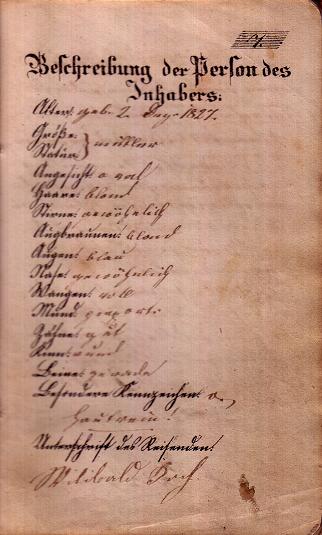 7.
Beschreibung der Person des
Inhabers:
Alter: geb. 2. 1827.
Größe:
Statur: } mittler
Angesicht: oval
Haare: blond
Stirne: gewöhnlich
Augbraunen: blond
Augen: blau
Nase: gewöhnlich
Wangen: voll
Mund: proport:
Zähne: gut
Kinn: rund
Beine: gerade
Besondere Kennzeichen:
Unterschrift des Reisenden:
Wilibald